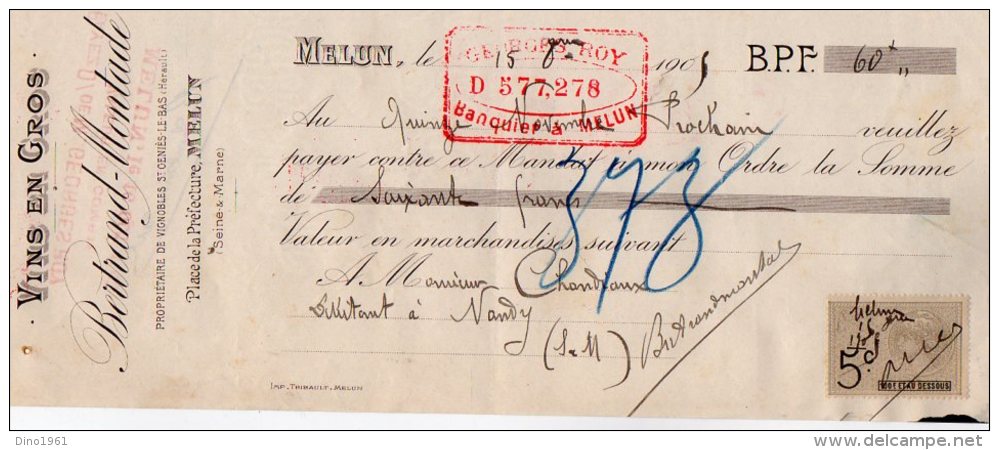 VINS EN GROS
Bertrand-Montade
PROPRIÉTAIRE DE VIGNOBLES ST GENIÈS-LE-BAS (Hérault)
Place de la Préfecture, MELUN
(Seine & Marne)
MELUN, le 15 8bre 1905 B.P.F. 60 "
GEORGES ROY
D 577,278
Banquier à MELUN
Au Quinze Novembre Prochain veuillez
payer contre ce Mandat à mon Ordre la Somme
de Soixante francs
Valeur en marchandises suivant
A Monsieur Chandiaux
Débitant à Nandy
(S&M)
Bertrandmontade
378
Melun
5c
100F ET AU DESSOUS
IMP. THIBAULT. MELUN
Dino1961
delcampe.net